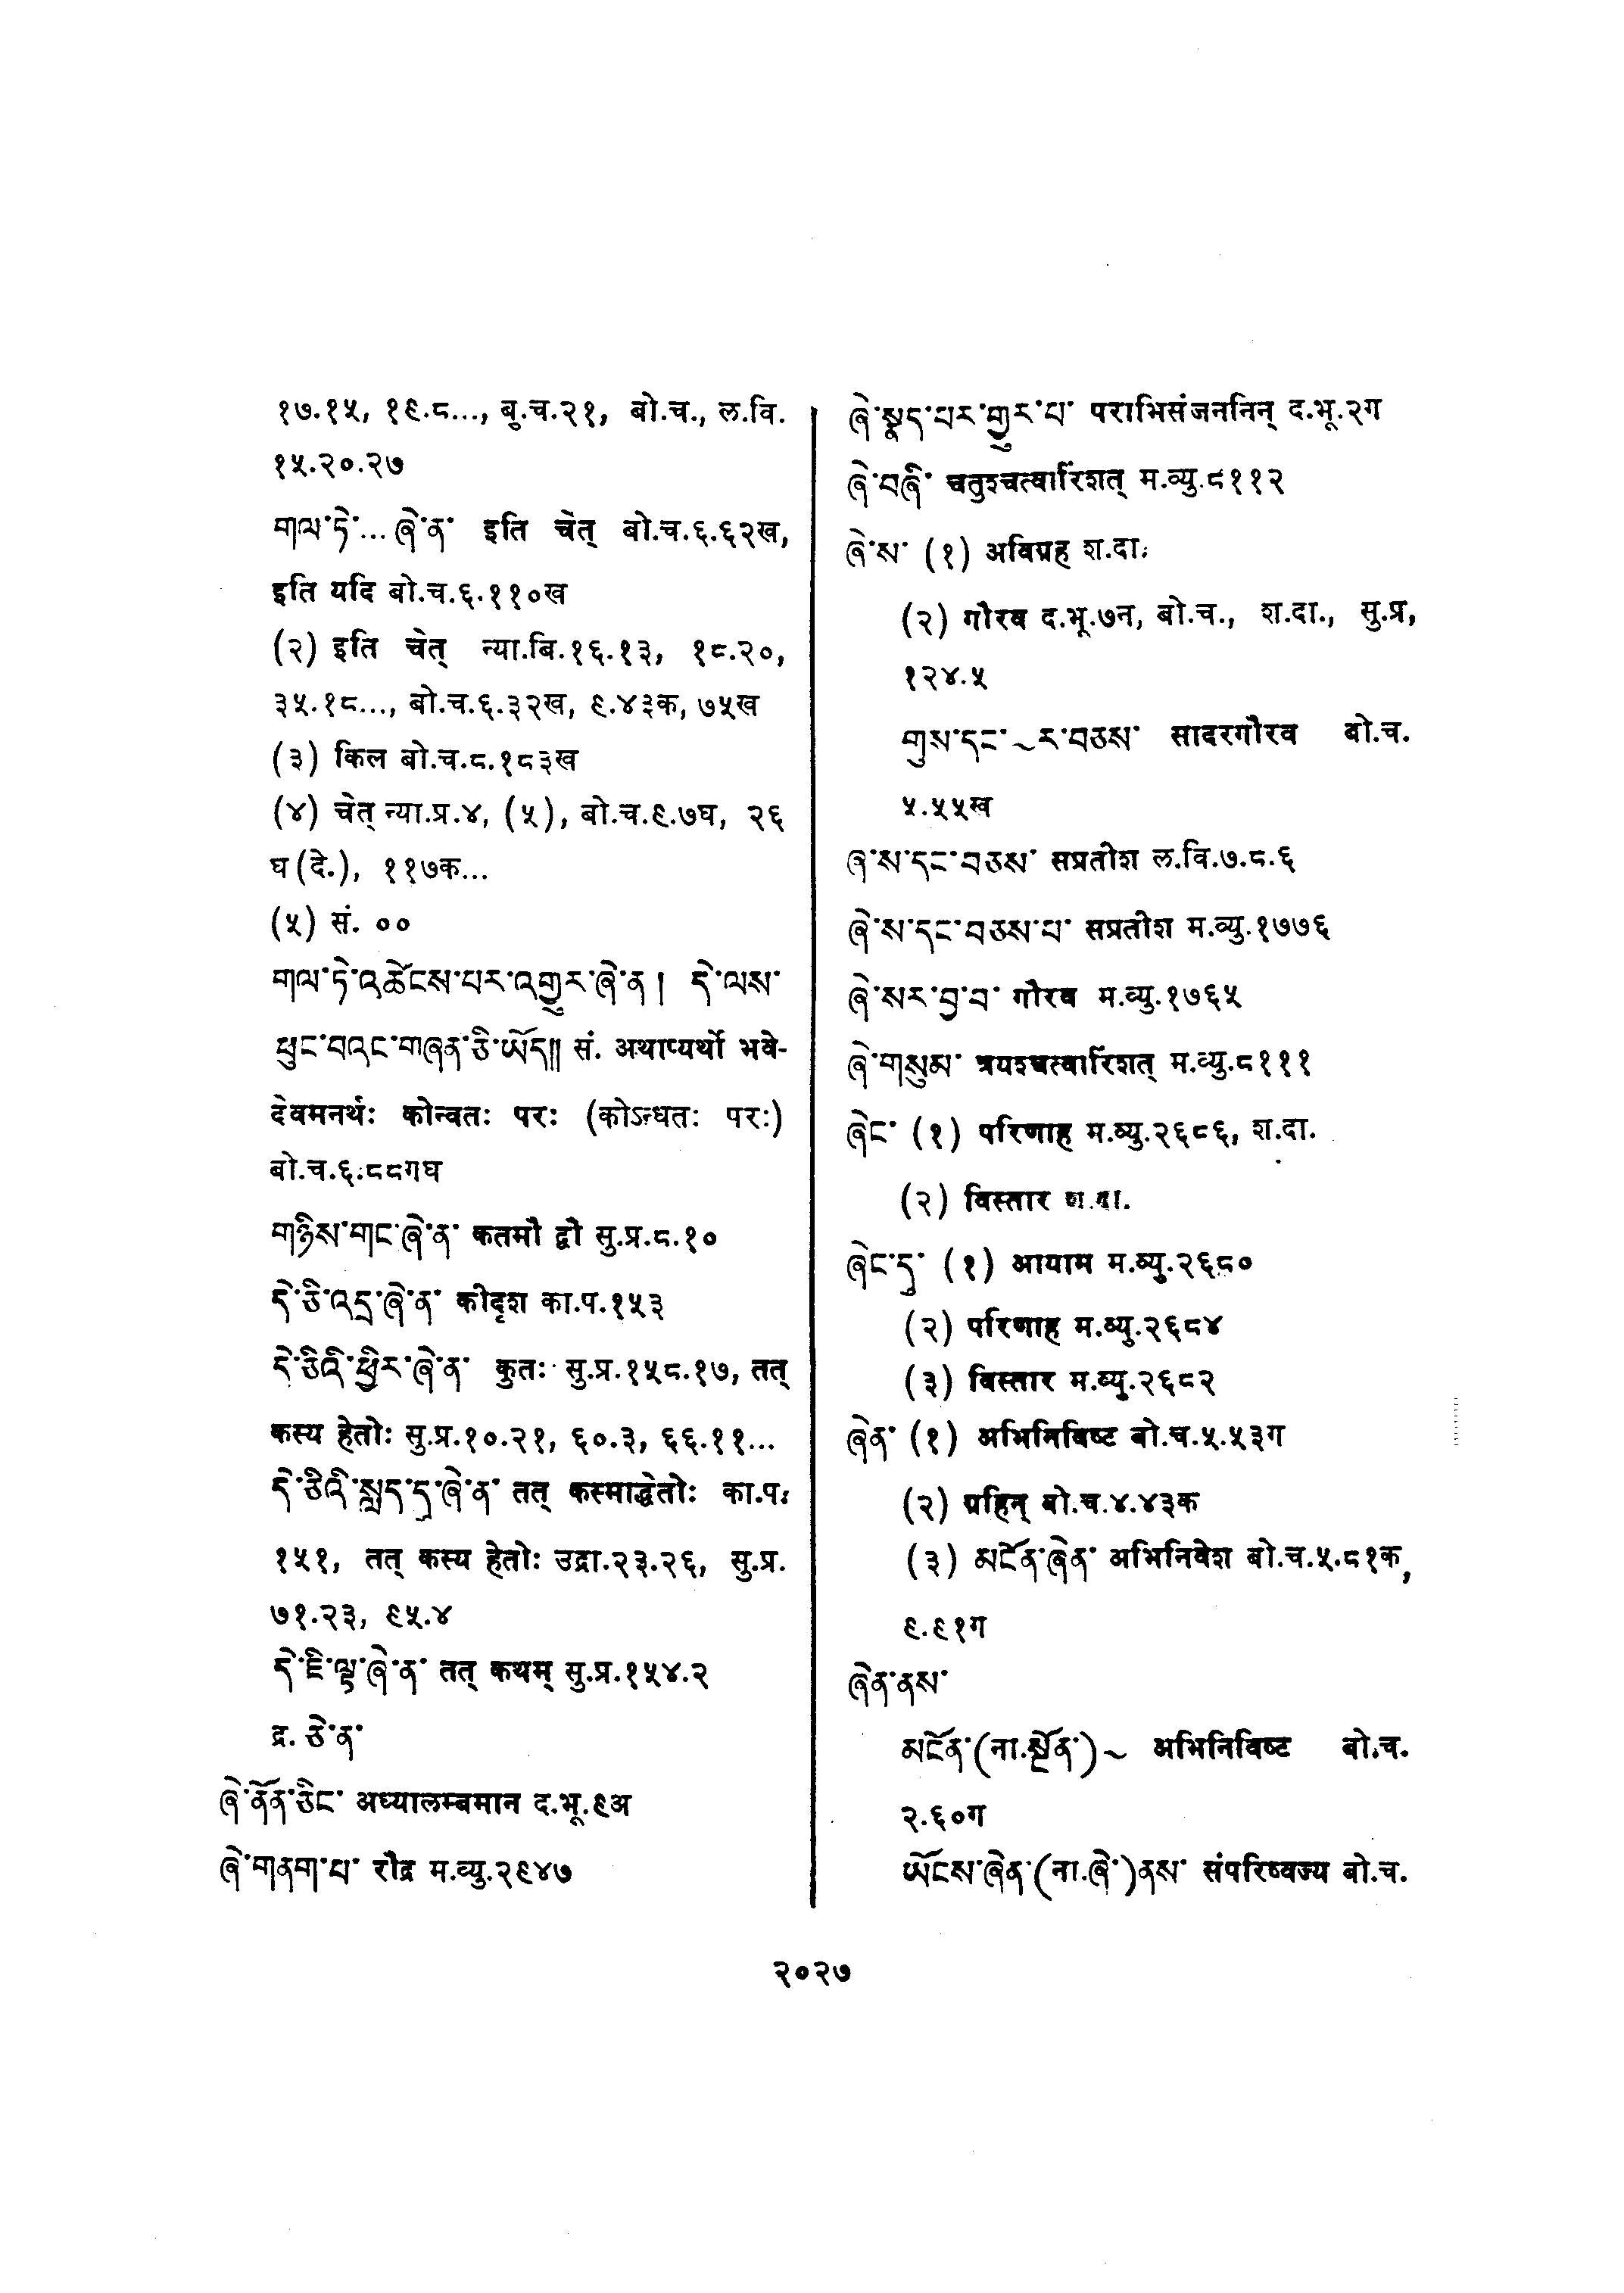 १७.१५, १९.८..., बु.च.२१, बो.च., ल.वि.
१५.२०.२७
གལ་ཏེ་...ཞེ་ན་ इति चेत् बो.च.६.६२ख,
इति यदि बो.च.६.११०ख
(२) इति चेत् न्या.बि.१६.१३, १८.२०,
३५.१८..., बो.च.६.३२ख, ९.४३क, ७५ख
(३) किल बो.च.८.१८३ख
(४) चेत् न्या.प्र.४, (५), बो.च.९.७घ, २६
घ(दे.), ११७क...
(५) सं. ००
གལ་ཏེ་འཚེངས་པར་འགྱུར་ཞེ་ན། དེ་ལས་
ཕུང་བའང་གཞན་ཅི་ཡོད༎ सं. अथाप्यर्थो भवे-
देवमनर्थः कोन्वतः परः (कोऽन्धतः परः)
बो.च.६.८८गघ
གཉིས་གང་ཞེ་ན་ कतमौ द्वौ सु.प्र.८.१०
དེ་ཅི་འདྲ་ཞེ་ན་ कीदृश का.प.१५३
དེ་ཅིའི་ཕྱིར་ཞེ་ན་ कुतः सु.प्र.१५८.१७, तत्
कस्य हेतोः सु.प्र.१०.२१, ६०.३, ६६.११...
དེ་ཅིའི་སླད་དུ་ཞེ་ན་ तत् कस्माद्धेतोः का.प.
१५१, तत् कस्य हेतोः उद्रा.२३.२६, सु.प्र.
७१.२३, ९५.४
དེ་ཇི་ལྟ་ཞེ་ན་ तत् कथम् सु.प्र.१५४.२
द्र. ཅེ་ན་
ཞེ་ནོན་ཅིང་ अध्यालम्बमान द.भू.९अ
ཞེ་གནག་པ་ रौद्र म.व्यु.२९४७
ཞེ་སྣད་པར་གྱུར་པ་ पराभिसंजननिन् द.भू.२ग
ཞེ་བཞི་ चतुश्चत्वारिंशत् म.व्यु.८११२
ཞེ་ས་ (१) अविग्रह श.दा.
(२) गौरव द.भू.७न, बो.च., श.दा., सु.प्र,
१२४.५
གུས་དང་~ར་བཅས་ सादरगौरव बो.च.
५.५५ख
ཞ་ས་དང་བཅས་ सप्रतीश ल.वि.७.८.६
ཞེ་ས་དང་བཅས་པ་ सप्रतीश म.व्यु.१७७६
ཞེ་སར་བྱ་བ་ गौरव म.व्यु.१७६५
ཞེ་གསུམ་ त्रयश्चत्वारिंशत् म.व्यु.८१११
ཞེང་ (१) परिणाह म.व्यु.२६८६, श.दा.
(२) विस्तार श.दा.
ཞེང་དུ་ (१) आयाम म.व्यु.२६८०
(२) परिणाह म.व्यु.२६८४
(३) विस्तार म.व्यु.२६८२
ཞེན་ (१) अभिनिविष्ट बो.च.५.५३ग
(२) ग्रहिन् बो.च.४.४३क
(३) མངོན་ཞེན་ अभिनिवेश बो.च.५.८१क,
९.९१ग
ཞེན་ནས་
མངོན་(ना.སྔོན་)~ अभिनिविष्ट बो.च.
२.६०ग
ཡོངས་ཞེན་(ना.ཞེ་)ནས་ संपरिष्वज्य बो.च.
२०२७